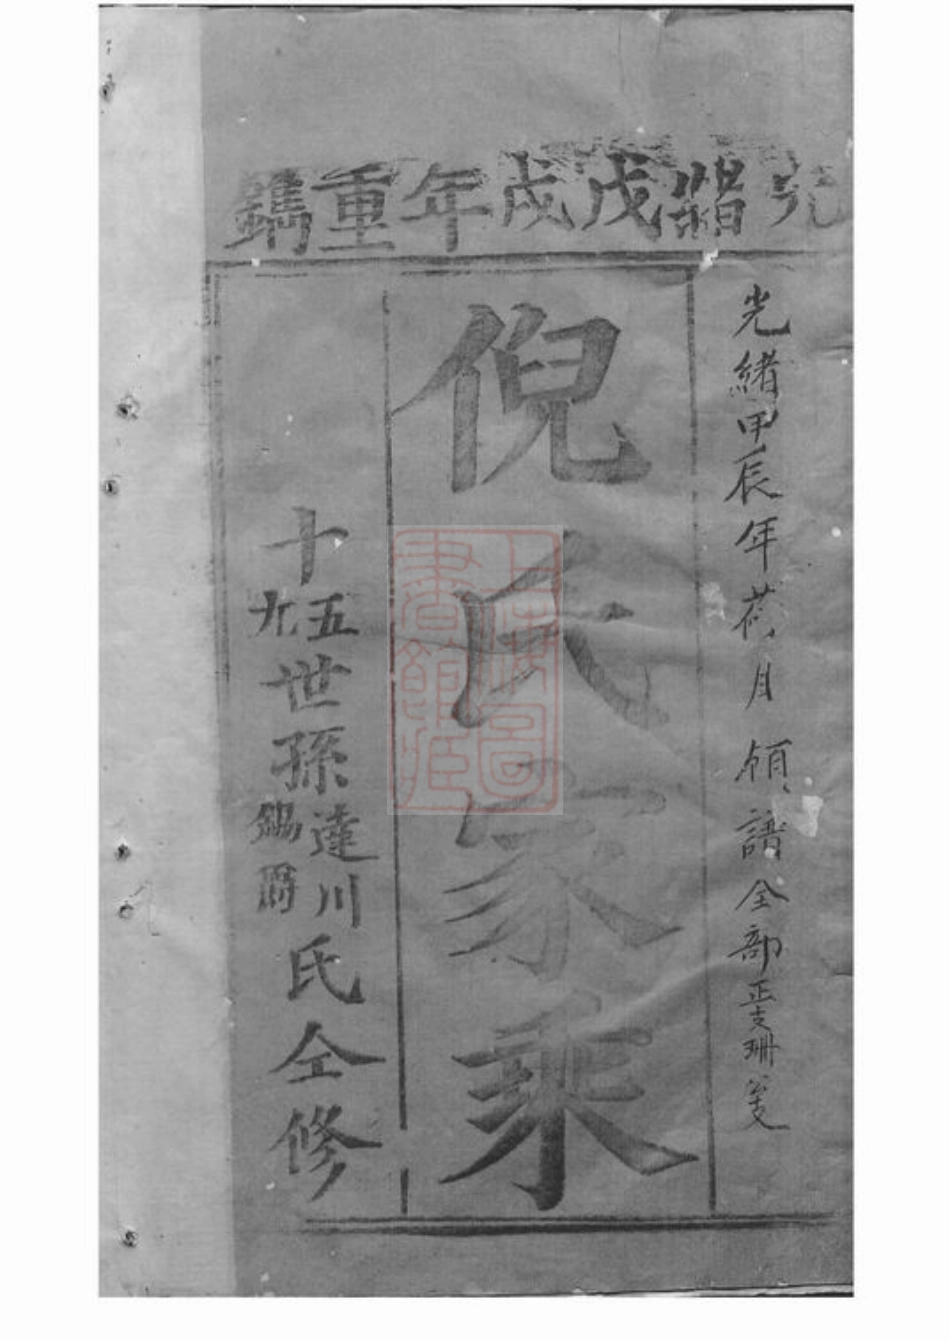 光緒戊戌年重鐫
光緒甲辰年荷月 領譜全部正支珊
倪氏家乘
十五九世孫達川錫爵氏仝修
上海圖書館藏